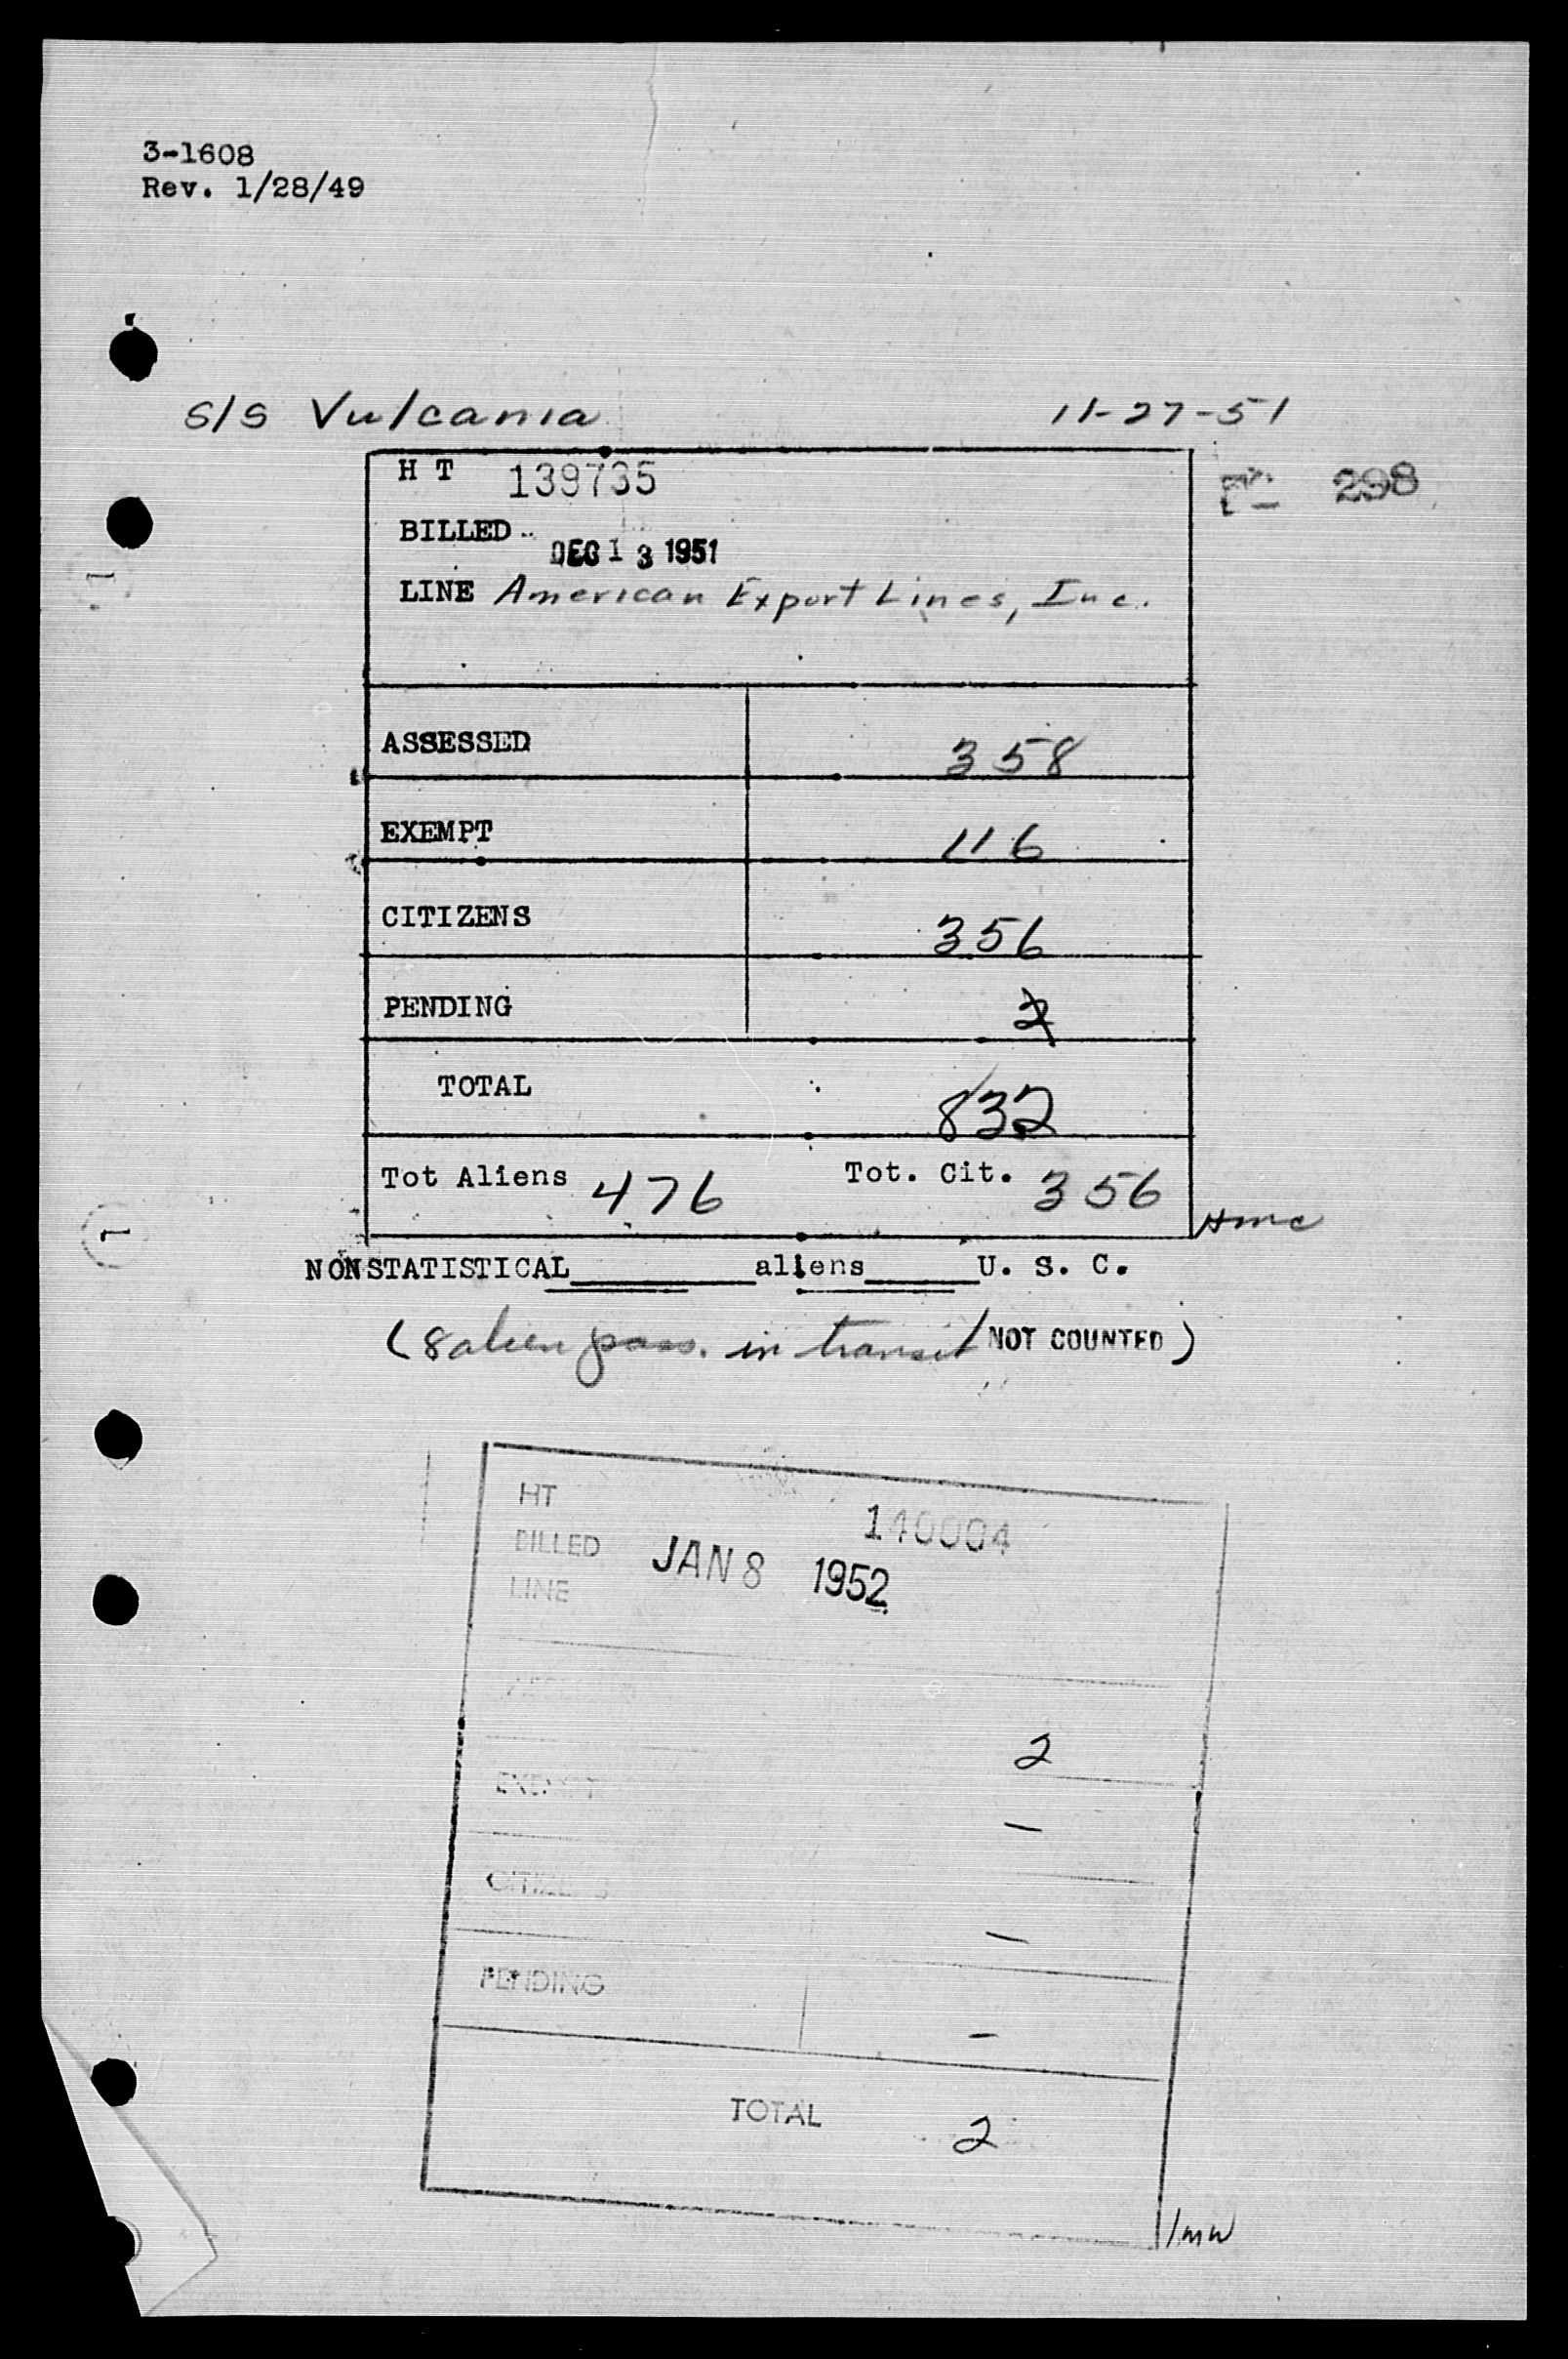 3-1608
Rev. 1/28/49
S/S Vulcania 11-27-51
H T 139735
298
BILLED DEC 13 1951
LINE American Export Lines, Inc.
ASSESSED 358
EXEMPT 116
CITIZENS 356
PENDING 2
TOTAL 832
Tot Aliens 476 Tot. Cit. 356
Hmc
NONSTATISTICAL aliens U. S. C.
(8 alien pass. in transit/NOT COUNTED)
HT 140004
BILLED JAN 8 1952
LINE
2
EXEMPT —
CITIZENS —
PENDING —
TOTAL 2
/mw